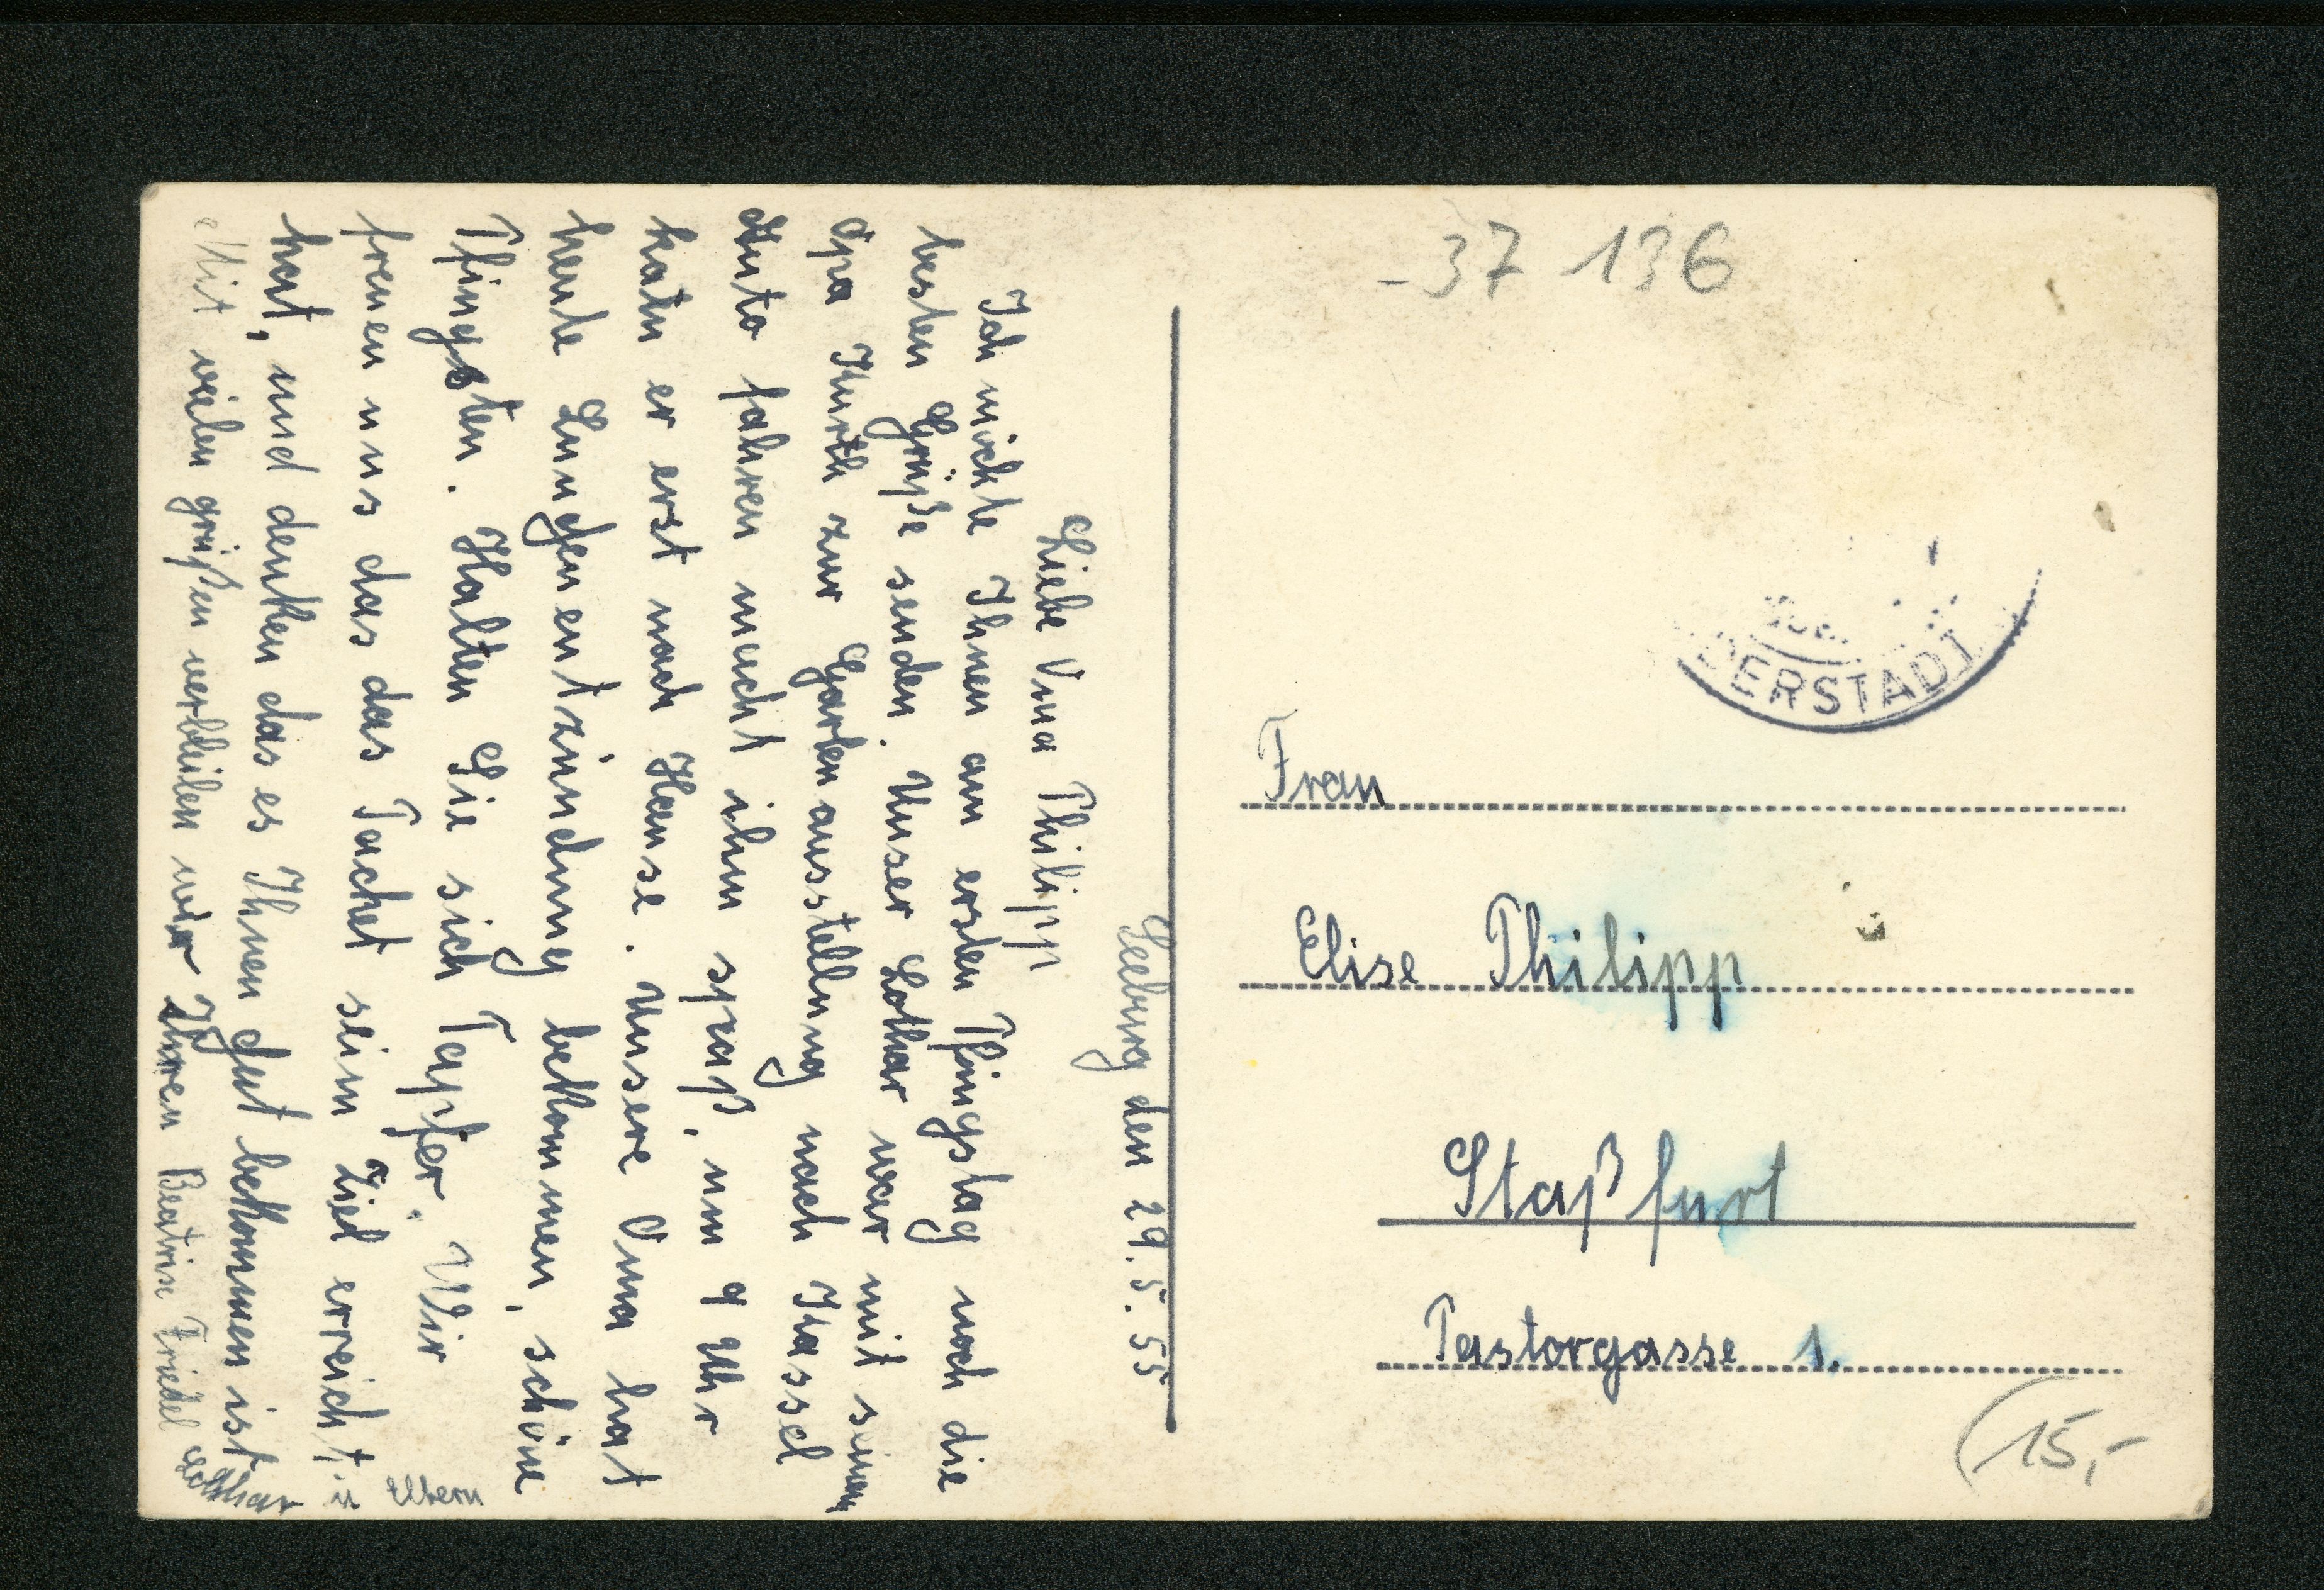 Seeburg den 29.5.55
Liebe Oma Philipp
Ich möchte Ihnen am ersten Pfingstag noch die
besten Grüße senden. Unser Lothar war mit seinem
Opa Kurth zur Gartenausstellung nach Kassel
Auto fahren macht ihm spaß, um 9 Uhr
kam er erst nach Hause. Unsere Oma hat
heute Lungenentzündung bekommen, schöne
Pfingsten. Halten Sie sich Tapfer. Wir
freuen uns das das Packet sein Ziel erreicht
hat, und denken das es Ihnen gut bekommen ist.
Mit vielen grüßen verbleiben wir Ihnen Beatrise Friedel Lothar
u Eltern
-37 136
DERSTADT
Frau
Elise Philipp
Staßfurt
Pastorgasse 1.
(15,-